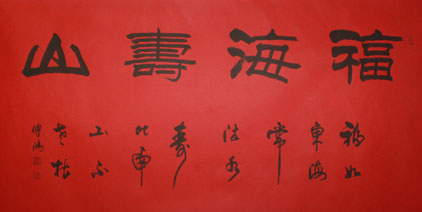 福海壽山
福如
東海
常
流水
壽
比南
山不
老松